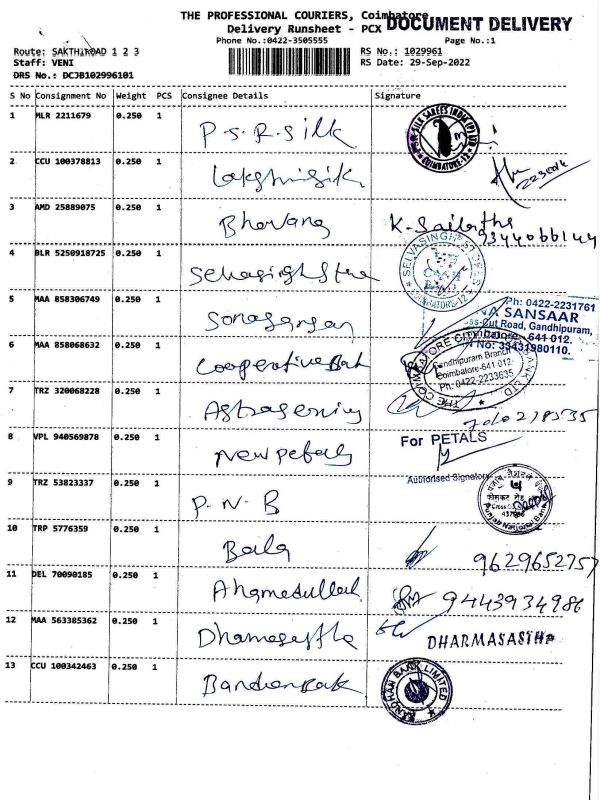 THE PROFESSIONAL COURIERS, Coimbatore
DOCUMENT DELIVERY
Delivery Runsheet - PCX
Phone No.:0422-3505555
Page No.:1
Route: SAKTHIROAD 1 2 3
RS No.: 1029961
Staff: VENI
RS Date: 29-Sep-2022
DRS No.: DCJB102996101
S No Consignment No Weight PCS Consignee Details Signature
1 MLR 2211679 0.250 1 P.S.R.Silk
P.S.R. SILK SAREES INDIA (P) LTD
COIMBATORE-12
2 CCU 100378813 0.250 1
3 AMD 25889075 0.250 1 Bhavana K. Sailatha
9344066144
4 BLR 5250918725 0.250 1
SELVASINGH STEELS
COIMBATORE-12
5 MAA 858306749 0.250 1
Ph: 0422-2231761
NA SANSAAR
ss-Cut Road, Gandhipuram,
641 012.
No: 33431980110.
6 MAA 858068632 0.250 1 Cooperative Bank
THE COIMBATORE CITY
Gandhipuram Branch
Coimbatore-641 012
Ph: 0422-2233635
7 TRZ 320068228 0.250 1
8 VPL 940569878 0.250 1 New petals
For PETALS
Authorised Signatory
9 TRZ 53823337 0.250 1 P.N.B
Punjab National Bank
10 TRP 5776359 0.250 1 Bala 9629652757
11 DEL 70090185 0.250 1 Ahamedullah 9443934986
12 MAA 563385362 0.250 1 Dhamasastha DHARMASASTHA
13 CCU 100342463 0.250 1 Bandhan Bank
BANDHAN BANK LIMITED